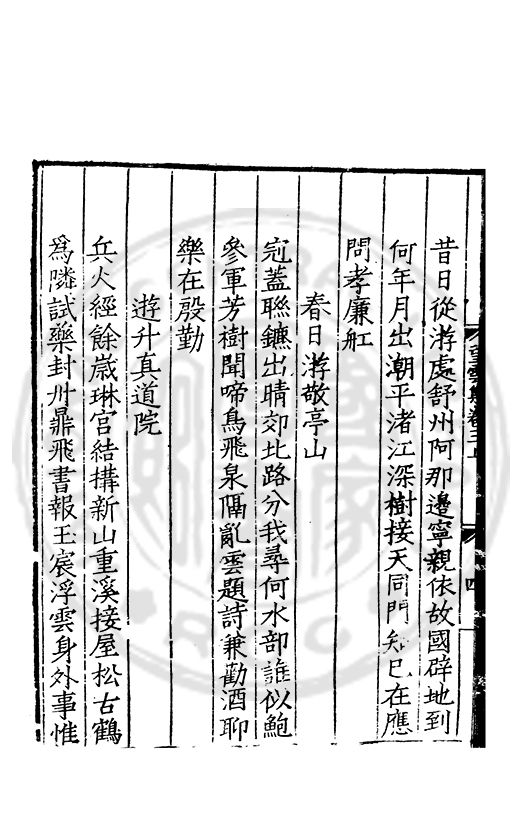 昔日從游處舒州阿那邊寧親依故國辟地到
何年月出潮平渚江深樹接天同門知己在應
問孝廉舡
春日游敬亭山
冠蓋聯鑣出晴郊北路分我尋何水部誰似鮑
參軍芳樹聞啼鳥飛泉隔亂雲題詩兼勸酒聊
樂在殷勤
遊升真道院
兵火經餘嵗琳宮結搆新山重溪接屋松古鶴
為隣試藥封丹鼎飛書報玉宸浮雲身外事惟